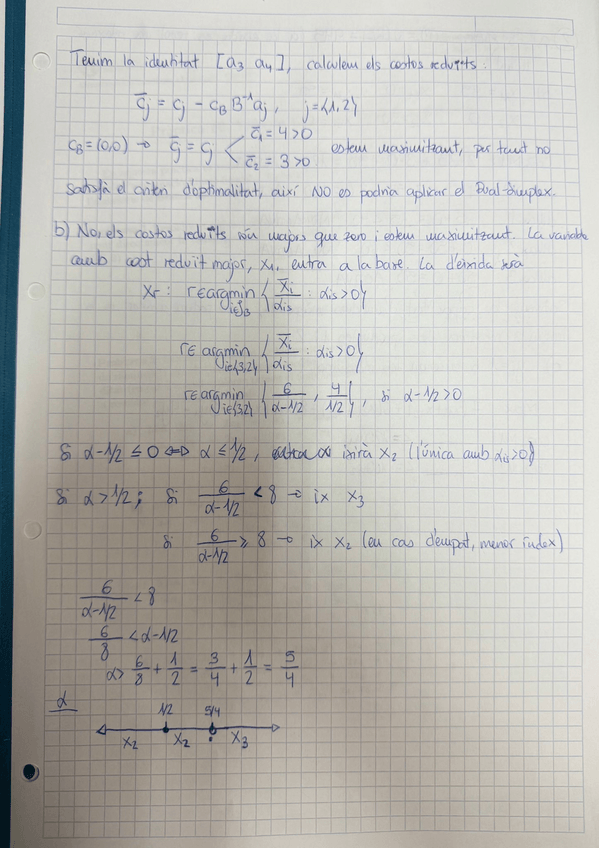 Tenim la identitat [a₃ a₄], calculem els costos reduïts.
c̄ⱼ = cⱼ - c_B B⁻¹aⱼ, j={1,2}
c_B=(0,0) → c̄ⱼ = cⱼ < c̄₁ = 4>0 estem maximitzant, per tant no
c̄₂ = 3>0
satisfà el criteri d'optimalitat, així NO es podria aplicar el Dual-Simplex.
b) No, els costos reduïts són majors que zero i estem maximitzant. La variable
amb cost reduït major, x₁, entra a la base. La d'eixida serà
xᵣ : r∈argmin_{i∈I_B} { x̄ᵢ/αᵢₛ : αᵢₛ>0}
r∈argmin_{i∈{3,2}} { x̄ᵢ/αᵢₛ : αᵢₛ>0}
r∈argmin_{i∈{3,2}} { 6/(α-1/2) , 4/(1/2) }, si α-1/2>0
Si α-1/2 ≤ 0 ⇔ α ≤ 1/2, eixirà x₂ (l'única amb αᵢₛ>0)
Si α>1/2; si 6/(α-1/2) < 8 → ix x₃
si 6/(α-1/2) ≥ 8 → ix x₂ (en cas d'empat, menor índex)
6/(α-1/2) < 8
6/8 < α-1/2
α> 6/8 + 1/2 = 3/4 + 1/2 = 5/4
α
1/2 5/4
x₂ x₂ x₃